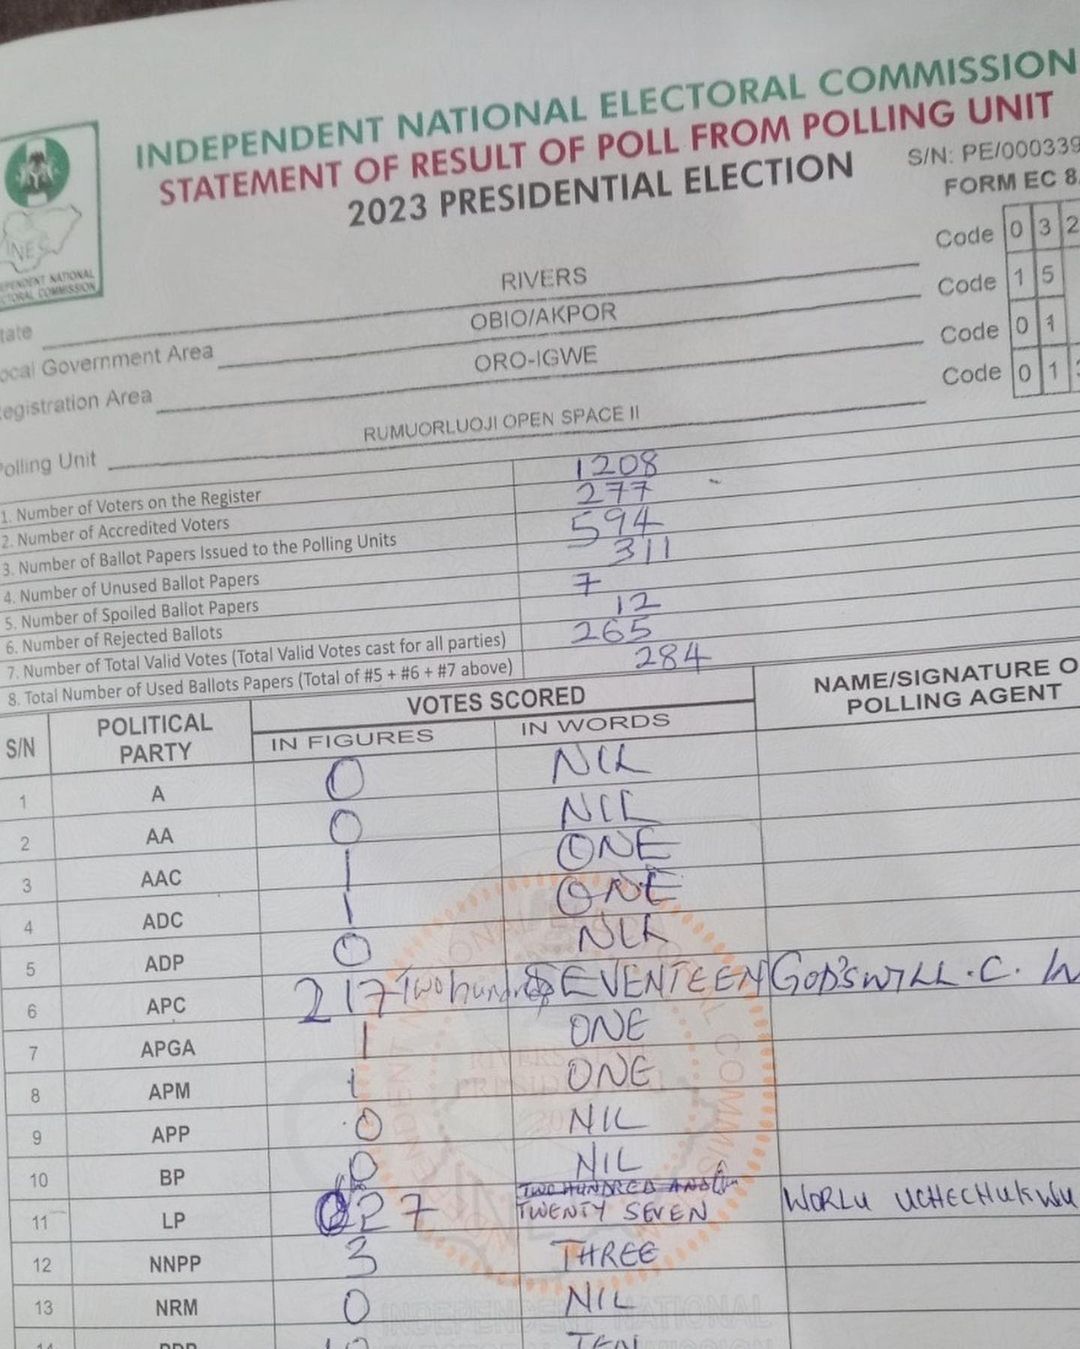 INDEPENDENT NATIONAL ELECTORAL COMMISSION
STATEMENT OF RESULT OF POLL FROM POLLING UNIT
2023 PRESIDENTIAL ELECTION
S/N: PE/000339
FORM EC 8
RIVERS Code 0 3 2
Local Government Area OBIO/AKPOR Code 1 5
Registration Area ORO-IGWE Code 0 1
Polling Unit RUMUORLUOJI OPEN SPACE II Code 0 1
1. Number of Voters on the Register 1208
2. Number of Accredited Voters 277
3. Number of Ballot Papers Issued to the Polling Units 594
4. Number of Unused Ballot Papers 311
5. Number of Spoiled Ballot Papers 7
6. Number of Rejected Ballots 12
7. Number of Total Valid Votes (Total Valid Votes cast for all parties) 265
8. Total Number of Used Ballots Papers (Total of #5 + #6 + #7 above) 284
S/N POLITICAL PARTY VOTES SCORED NAME/SIGNATURE O
POLLING AGENT
IN FIGURES IN WORDS
1 A 0 NIL
2 AA 0 NIL
3 AAC 1 ONE
4 ADC 1 ONE
5 ADP 0 NIL
6 APC 217 Two hundred SEVENTEEN GOD'SWILL.C.
7 APGA 1 ONE
8 APM 1 ONE
9 APP 0 NIL
10 BP 0 NIL
TWO HUNDRED AND
11 LP 27 TWENTY SEVEN WORLU UCHECHUKWU
12 NNPP 3 THREE
13 NRM 0 NIL
TEN